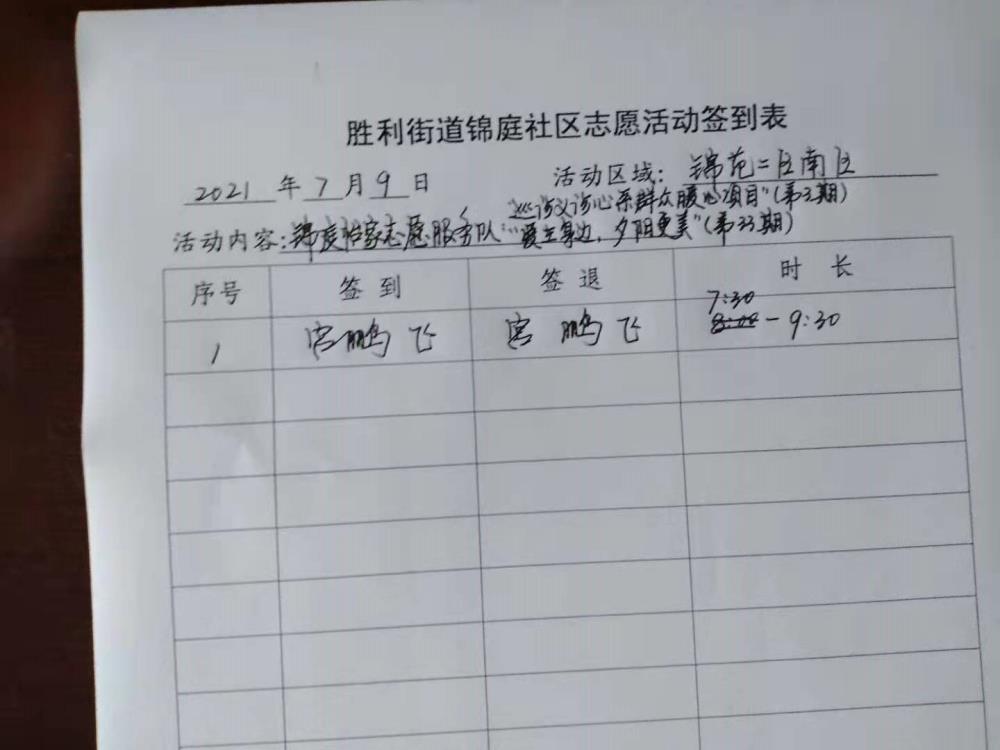 胜利街道锦庭社区志愿活动签到表
2021 年 7 月 9 日 活动区域: 锦苑二区南区
心系群众暖心项目"(第3期)
活动内容:锦庭怡家志愿服务队"爱在身边,夕阳更美"(第33期)
序号 签到 签退 时长
7:30
1 宫鹏飞 宫鹏飞 8:00-9:30